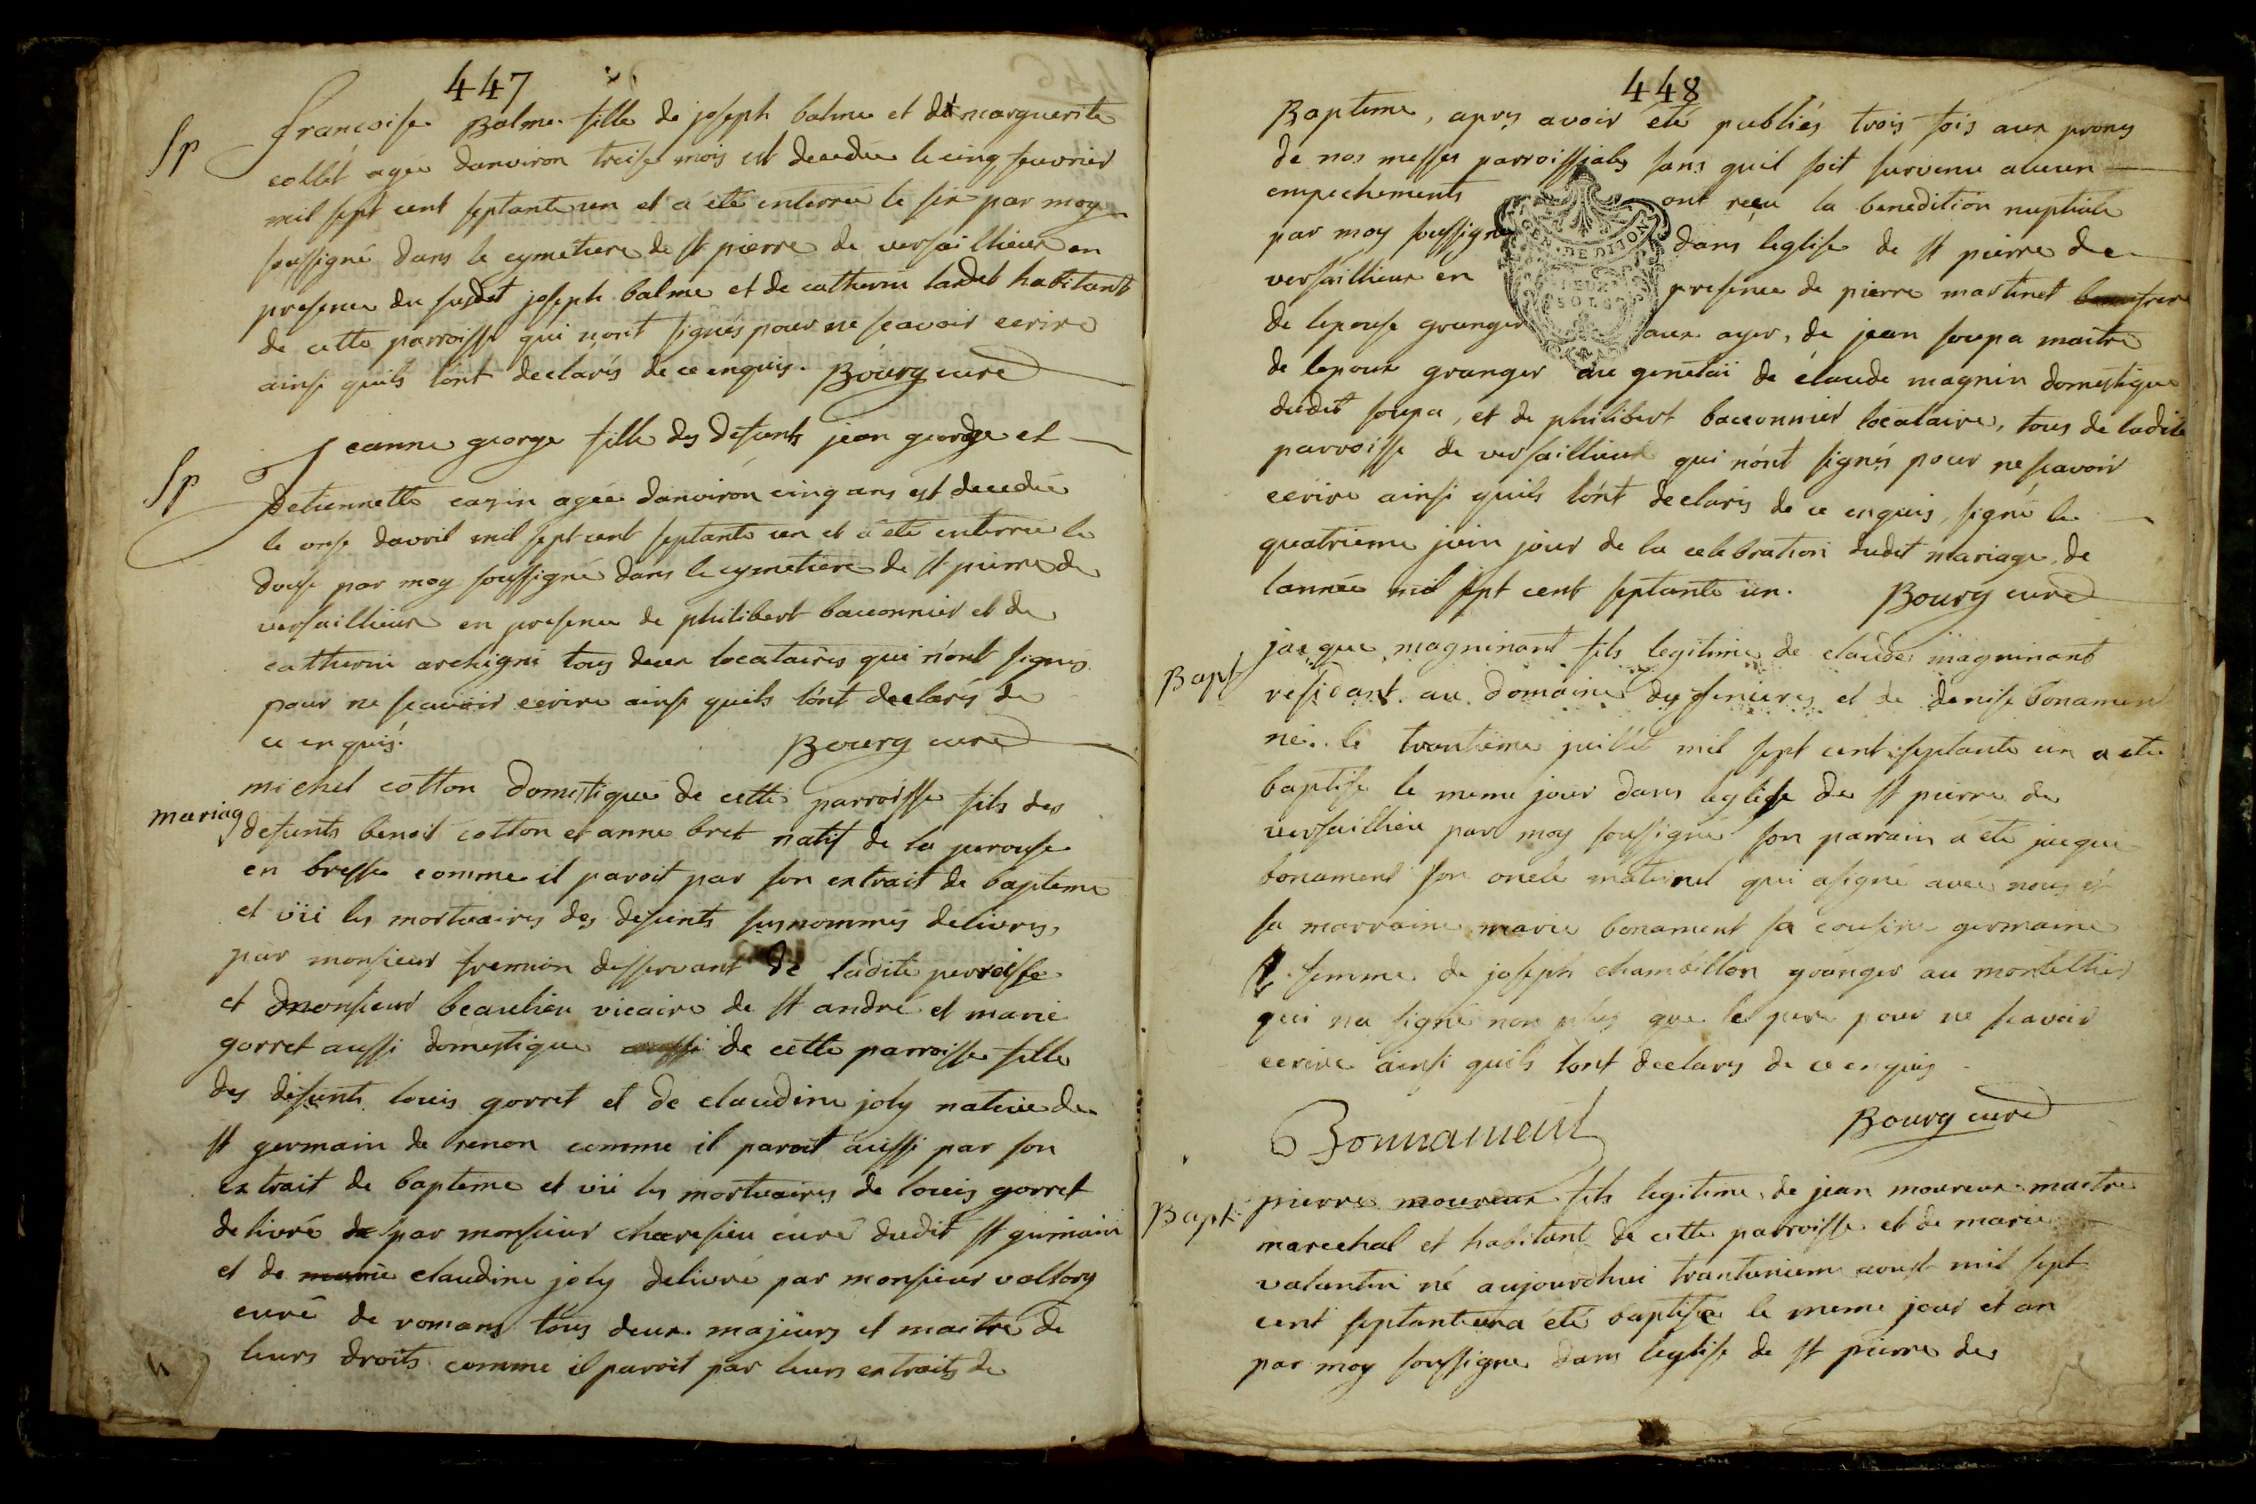 447
Sp
francoise Balme fille de joseph balme et de marguerite
collet agée danviron treise mois est decedee le cinq feuvrier
mil sept cent septante un et a été enterrée le six par moy
soussigné dans le cymetiere de st pierre de versaillieux en
presence du susdit joseph balme et de catherin tardet habitants
de cette parroisse qui n'ont signés pour ne scavoir ecrire
ainsi quils lont declarés de ce enquis. Bourg curé
Sp
Jeanne george fille des defunts jean george et
detiennette cazin agée danviron cinq ans est decedée
le onse davril mil sept cent septante un et a été enterrée le
douse par moy soussigné dans le cymetiere de st pierre de
versaillieux en presence de philibert baconnier et de
catherin archigni tous deux locataires qui n'ont signés
pour ne scavoir ecrire ainsi quils lont declarés de
ce enquis. Bourg curé
mariag
michel cotton domestique de cette parroisse fils des
defunts benoit cotton et anne bret natif de la perouse
en bresse comme il paroit par son extrait de bapteme
et vü les mortuaires des defunts susnommés delivrés,
par monsieur fremion desservant de ladite perroisse
et monsieur beaulieu vicaire de st andré et marie
gorret aussi domestique aussi de cette parroisse fille
des defunts louis gorret et de claudine joly native de
st germain de renon comme il paroit aussi par son
extrait de bapteme et vü les mortuaires de louis gorret
delivré de par monsieur charesieu curé dudit st germain
et de marie claudine joly delivré par monsieur vallory
curé de romans tous deux majeurs et maitre de
leurs droits comme il paroit par leurs extraits de
448
Bapteme, apres avoir été publiés trois fois aux prones
de nos messes parroissiales sans quil soit survenu aucun
empechements ont reçu la benedition nuptiale
par moy soussigné dans leglise de st pierre de
versaillieux en presence de pierre martinet frere
de lepouse granger aux ayes, de jean soupa maitre
de lepoux granger au genetai de claude magnin domestique
dudit soupa, et de philibert baconnier locataire, tous de ladite
parroisse de versaillieux qui n'ont signés pour ne scavoir
ecrire ainsi quils lont declarés de ce enquis, signé le
quatrieme juin jour de la celebration dudit mariage de
lannée mil sept cent septante un. Bourg curé
GEN. DE DIJON
DEUX SOLS
Bapt
jacque magninant fils legitime de claude magninant
residant au domaine des et de denise bonament
né le trantieme juillet mil sept cent septante un a été
baptisé le meme jour dans leglise de st pierre de
versaillieu par moy soussigné son parrain a été jacque
bonament son oncle maternel qui asigné avec nous et
sa marraine marie bonament sa cousine germaine
femme de joseph chambillon granger au montellier
qui na signé non plus que le pere pour ne scavoir
ecrire ainsi quils lont declarés de ce enquis
Bonnament Bourg curé
Bapt
pierre moureux fils legitime de jean moureux maitre
marechal et habitant de cette parroisse et de marie
valantin né aujourdhui trantunieme aoust mil sept
cent septanteun a été baptisé le meme jour et an
par moy soussigné dans leglise de st pierre de